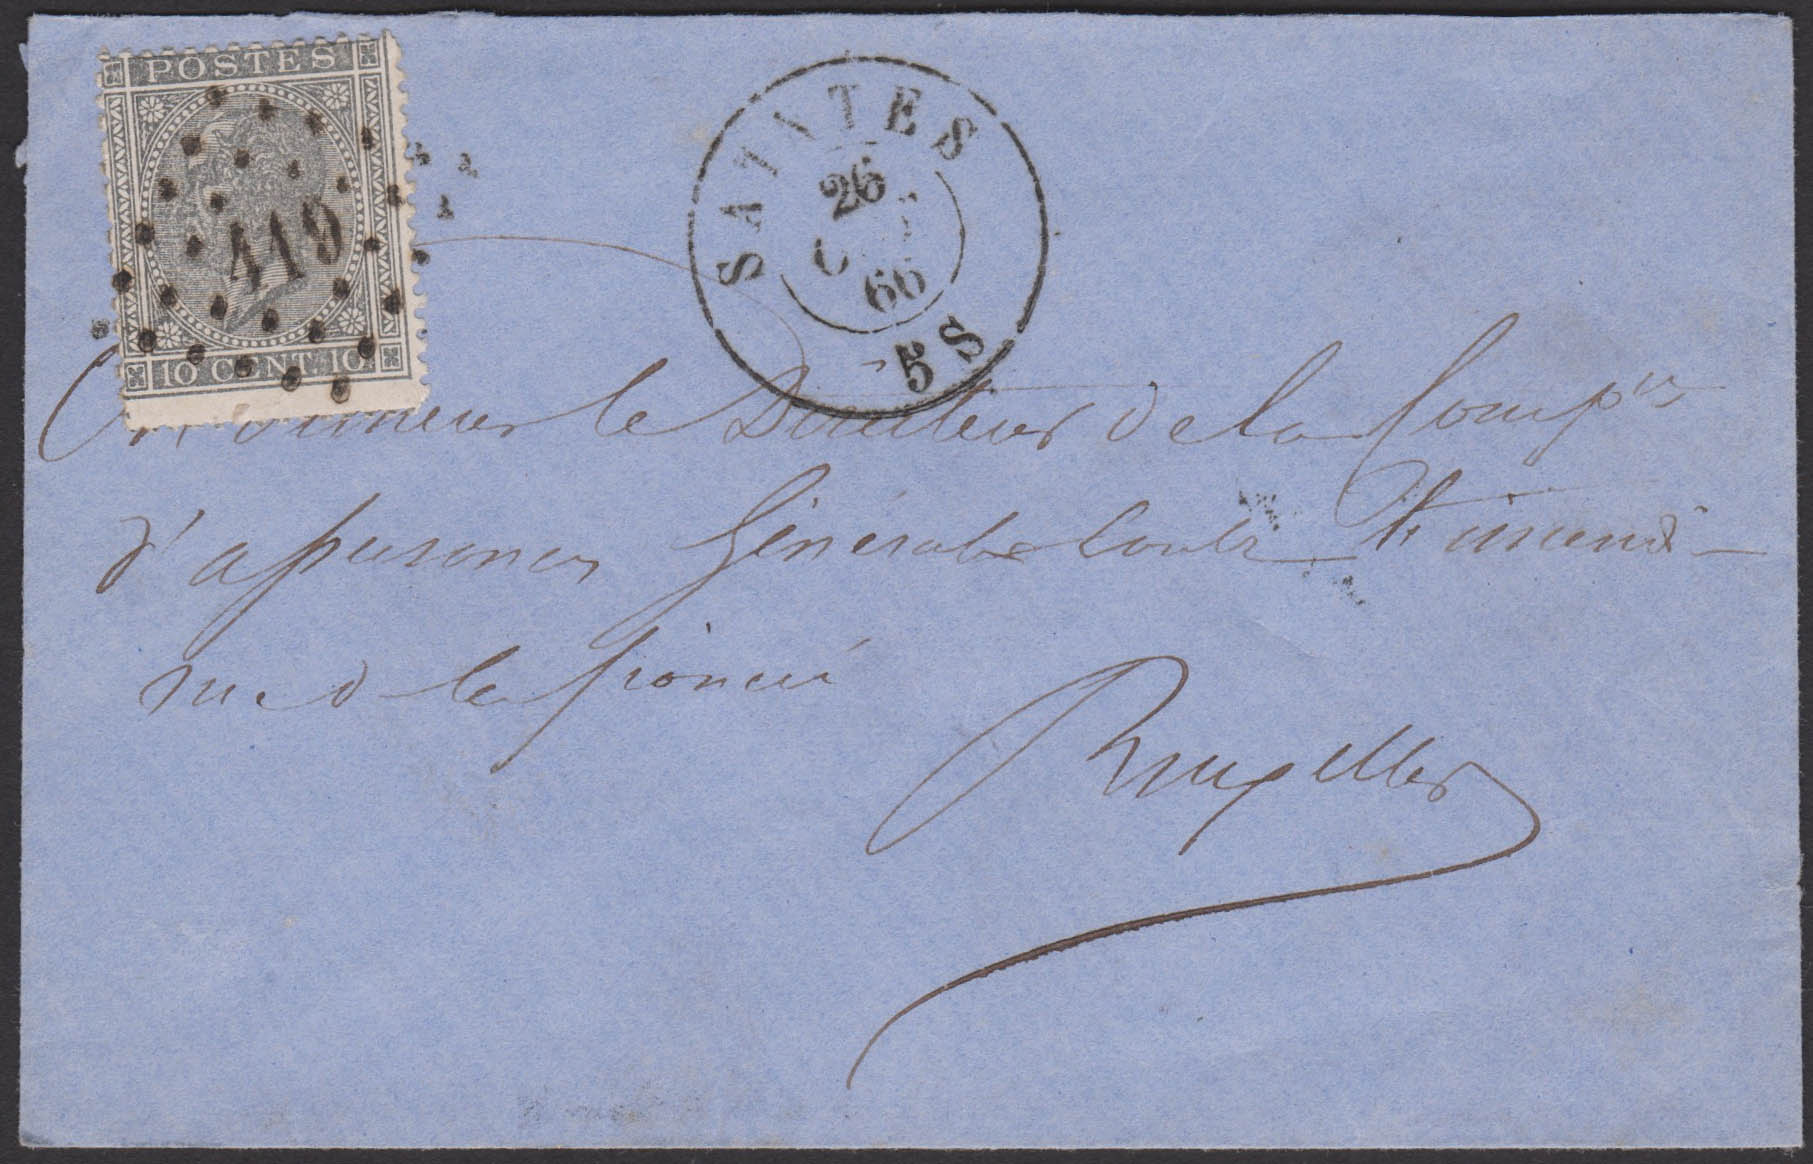 POSTES
419
10 CENT. 10
SAINTES
26
66
5 S
Monsieur le Directeur de la Comp<sup>ie</sup>
d'assurances Générales contre
rue de la
Bruxelles